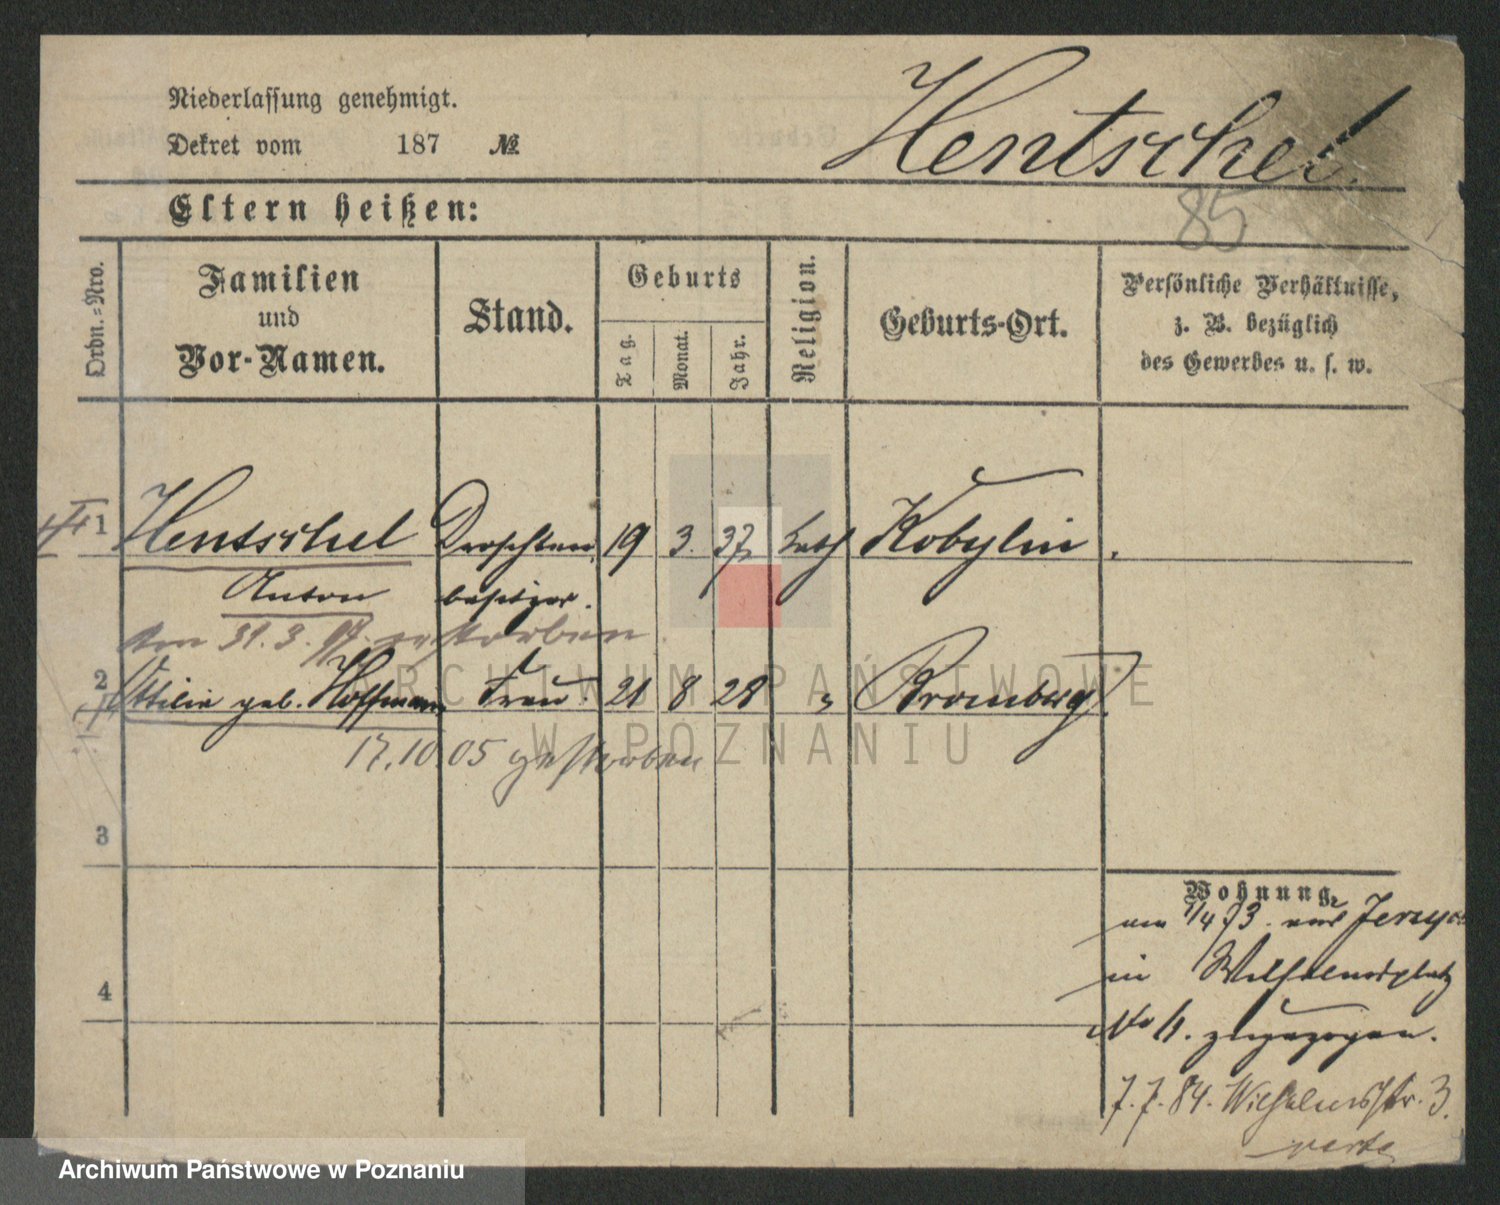 Niederlassung genehmigt.
Dekret vom 187 №
Hentschel.
85
Eltern heißen:
Ordn.-Nro.
Familien
und
Vor-Namen.
Stand.
Geburts
Tag.
Monat.
Jahr.
Religion.
Geburts-Ort.
Persönliche Verhältnisse,
z. B. bezüglich
des Gewerbes u. s. w.
1 Hentschel Droschken 19 3. 37 kath Kobylin
Anton besitzer.
am 31.3.97 gestorben
2 Ottilie geb. Hoffmann Frau 21 8 28 " Bromberg
17.10.05 gestorben
3
4
Wohnung.
am 1/4 73 aus
in Wilhelmsplatz
No zugezogen.
7.7.84. Wilhelmstr. 3.
verte
ARCHIWUM PAŃSTWOWE
W POZNANIU
Archiwum Państwowe w Poznaniu